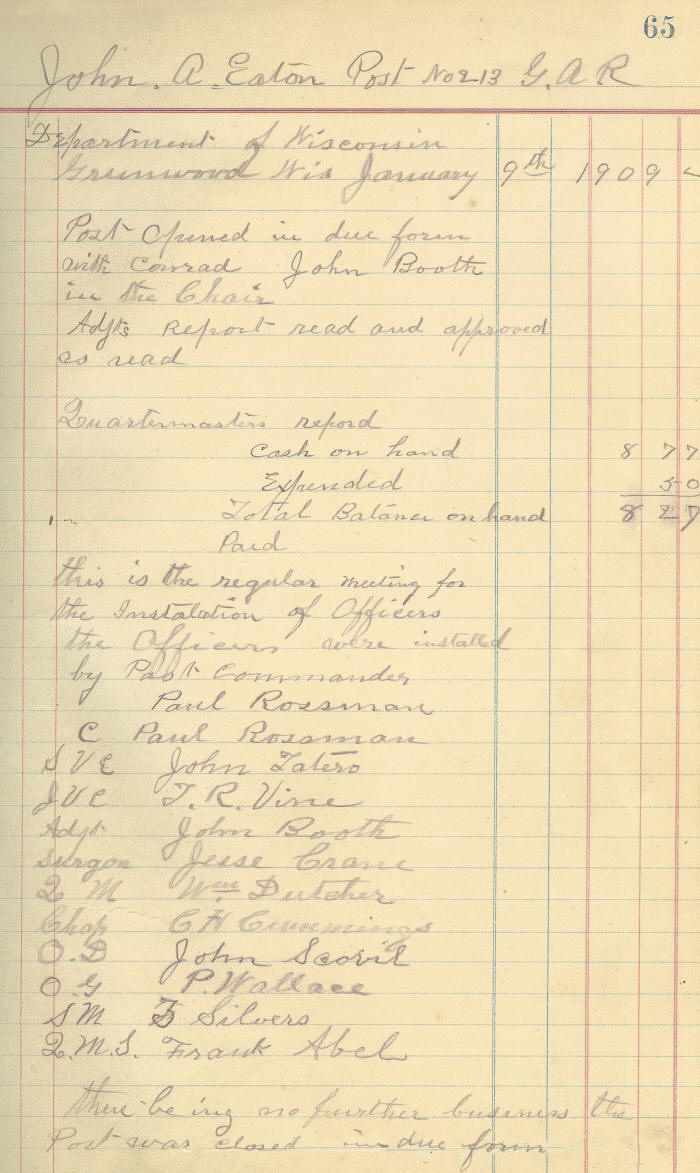 65
John. A. Eaton Post No 213 G. A R
Department of Wisconsin
Greenwood Wis January 9th 1909
Post Opened in due form
with Conrad John Booth
in the Chair
Adjts Report read and approved
as read
Quartermasters repord
Cash on hand 8 77
Expended 50
Total Balance on hand 8 27
Paid
this is the regular meeting for
the Instalation of Officers
the Officers were installed
by Past Commander
Paul Rossman
C Paul Rossman
S V C John Tatero
J V C T. R. Vine
Adjt John Booth
Surgon Jesse Crane
Q M Wm Dutcher
Chap C H Cummings
O. D John Scovil
O G P. Wallace
S M Silvers
Q. M. S. Frank Abel
there being no further business the
Post was closed in due form